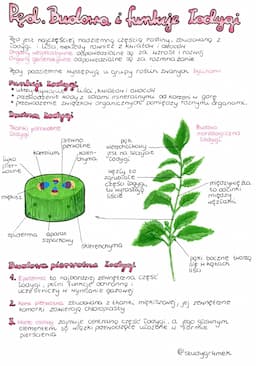 Pęd. Budowa i funkcje łodygi
Pęd jest najczęściej nadziemną częścią rośliny, zbudowaną z
łodygi i liści, niekiedy również z kwiatów i owoców
Organy wegetatywne odpowiedzialne są za wzrost i rozwój
Organy generatywne odpowiedzialne są za rozmnażanie
Pędy podziemne występują u grupy roślin zwanych bylinami
Funkcje łodygi
liści, kwiatów i owoców
wody z solami mineralnymi od korzeni w górę
przewodzenie związków organicznych pomiędzy różnymi organami
Budowa łodygi
Tkanki pierwotne łodygi
Budowa morfologiczna łodygi
łyko pierwotne
kambium
drewno pierwotne
miękisz
epiderma
aparat szparkowy
sklerenchyma
pęk wierzchołkowy jest na szczycie łodygi
węzły to najwyższe części łodygi, tu wyrastają liście
międzywęźla to odcinki między węzłami
pęki boczne tworzą się w kątach liści
Budowa pierwotna łodygi
1. Epiderma to najbardziej zewnętrzna część
łodygi, pełni funkcję ochronną i
uczestniczy w wymianie gazowej
2. Kora pierwotna zbudowana z tkanki miękiszowej, jej zewnętrzne
komórki zawierają chloroplasty
3. Walec osiowy zajmuje centralną część łodygi, a jego głównym
elementem są wiązki przewodzące ułożone w
pierścienia
@studygr4mek